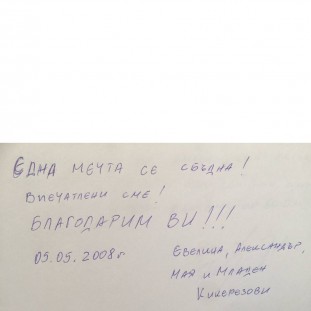 ЕДНА МЕЧТА СЕ СБЪДНА!
ВПЕЧАТЛЕНИ СМЕ!
БЛАГОДАРИМ ВИ!!!
05.05.2008г
ЕВЕЛИНА, АЛЕКСАНДЪР,
МАЯ И МЛАДЕН